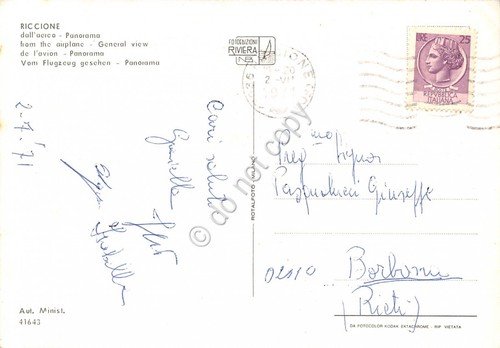 RICCIONE
dall'aereo - Panorama
from the airplane - General view
de l'avion - Panorama
Vom Flugzeug gesehen - Panorama
FOTOEDIZIONI
RIVIERA
LIRE 25
REPVBBLICA
ITALIANA
2.7.'71
Cari saluti
Graziella
Isabella
ROTALFOTO
do not copy
Preg.mo Signor
Pasqualucci Giuseppe
02010 Borbona
(Rieti)
Aut. Minist.
41643
DA FOTOCOLOR KODAK EKTACHROME - RIP. VIETATA